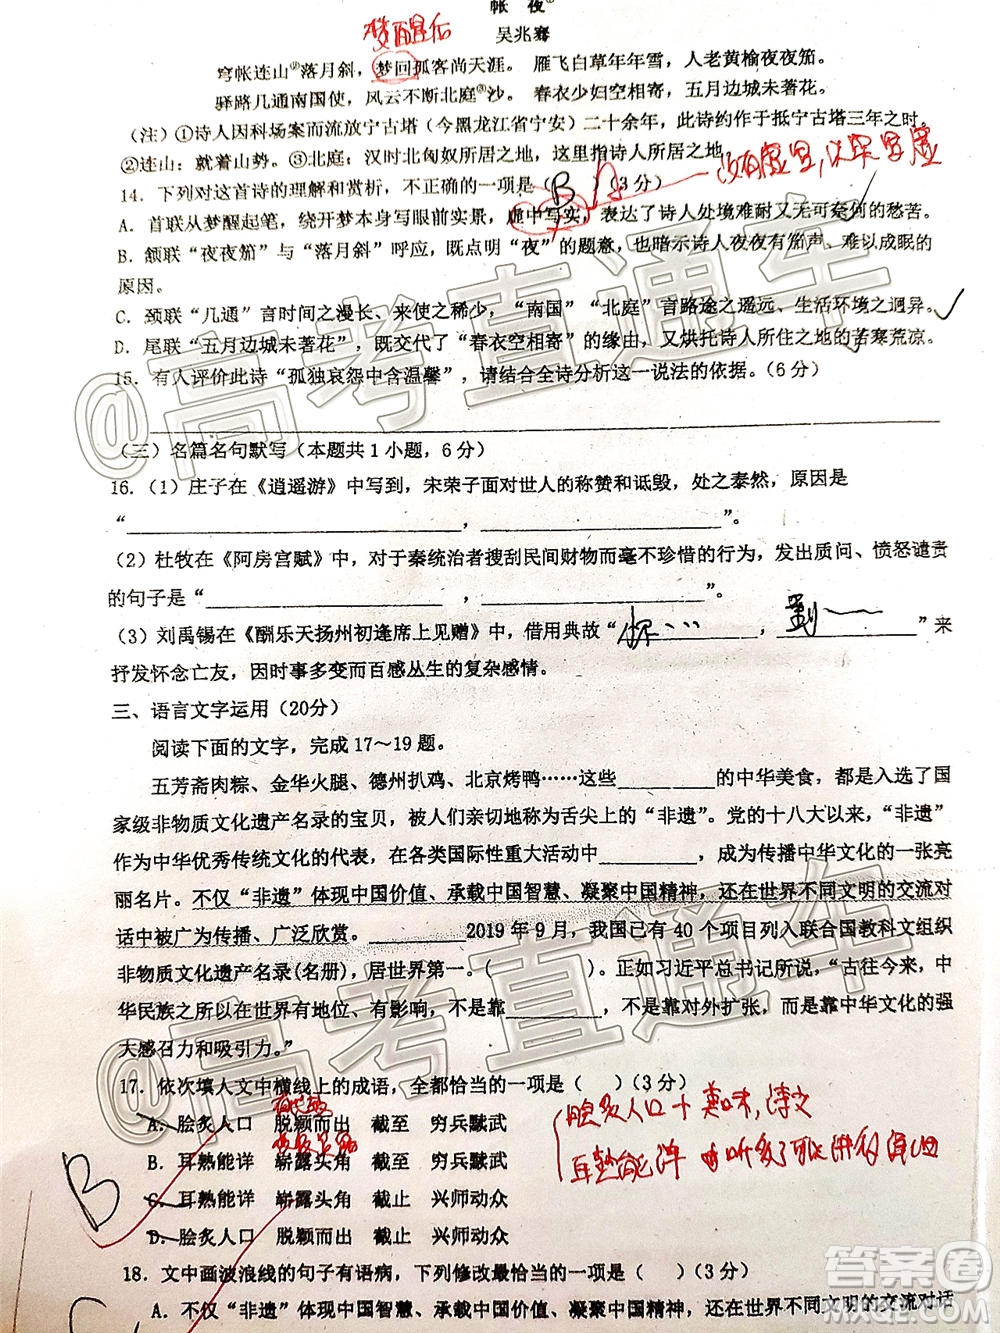 帐 夜①
梦醒后
吴兆骞
穹帐连山②落月斜，梦回孤客尚天涯。 雁飞白草年年雪，人老黄榆夜夜笳。
驿路几通南国使，风云不断北庭③沙。 春衣少妇空相寄，五月边城未著花。
（注）①诗人因科场案而流放宁古塔（今黑龙江省宁安）二十余年，此诗约作于抵宁古塔三年之时。
②连山：就着山势。③北庭：汉时北匈奴所居之地，这里指诗人所居之地
14．下列对这首诗的理解和赏析，不正确的一项是（ B ）（3 分）
A．首联从梦醒起笔，绕开梦本身写眼前实景，虚中写实，表达了诗人处境难耐又无可奈何的愁苦。
B．颔联“夜夜笳”与“落月斜”呼应，既点明“夜”的题意，也暗示诗人夜夜有笳声、难以成眠的
原因。
C．颈联“几通”言时间之漫长、来使之稀少，“南国”“北庭”言路途之遥远、生活环境之迥异。
D．尾联“五月边城未著花”，既交代了“春衣空相寄”的缘由，又烘托诗人所居之地的苦寒荒凉。
15．有人评价此诗“孤独哀怨中含温馨”，请结合全诗分析这一说法的依据。（6 分）
（三）名篇名句默写（本题共 1 小题，6 分）
16．（1）庄子在《逍遥游》中写到，宋荣子面对世人的称赞和诋毁，处之泰然，原因是
“＿＿＿＿＿＿＿＿，＿＿＿＿＿＿＿＿”。
（2）杜牧在《阿房宫赋》中，对于秦统治者搜刮民间财物而毫不珍惜的行为，发出质问、愤怒谴责
的句子是“＿＿＿＿＿＿＿＿，＿＿＿＿＿＿＿＿”。
（3）刘禹锡在《酬乐天扬州初逢席上见赠》中，借用典故“＿＿＿＿，＿＿＿＿”来
抒发怀念亡友，因时事多变而百感丛生的复杂感情。
三、语言文字运用（20分）
阅读下面的文字，完成 17～19 题。
五芳斋肉粽、金华火腿、德州扒鸡、北京烤鸭……这些＿＿＿＿的中华美食，都是入选了国
家级非物质文化遗产名录的宝贝，被人亲切地称为舌尖上的“非遗”。党的十八大以来，“非遗”
作为中华优秀传统文化的代表，在各类国际性重大活动中＿＿＿＿，成为传播中华文化的一张亮
丽名片。不仅“非遗”体现中国价值、承载中国智慧、凝聚中国精神，还在世界不同文明的交流对
话中被广为传播、广泛欣赏。＿＿＿＿2019 年 9 月，我国已有 40 个项目列入联合国教科文组织
非物质文化遗产名录(名册)，居世界第一。（　　）。正如习近平总书记所说，“古往今来，中
华民族之所以在世界有地位、有影响，不是靠＿＿＿＿，不是靠对外扩张，而是靠中华文化的强
大感召力和吸引力。”
17．依次填入文中横线上的成语，全都恰当的一项是（　）(3 分)
A．脍炙人口 脱颖而出 截至 穷兵黩武
B．耳熟能详 崭露头角 截至 穷兵黩武
C．耳熟能详 崭露头角 截止 兴师动众
D．脍炙人口 脱颖而出 截止 兴师动众
B
18．文中画波浪线的句子有语病，下列修改最恰当的一项是（　）(3 分)
A．不仅“非遗”体现中国智慧、承载中国价值、凝聚中国精神，还在世界不同文明的交流对话
@高考直通车
@高考直通车
答案圈